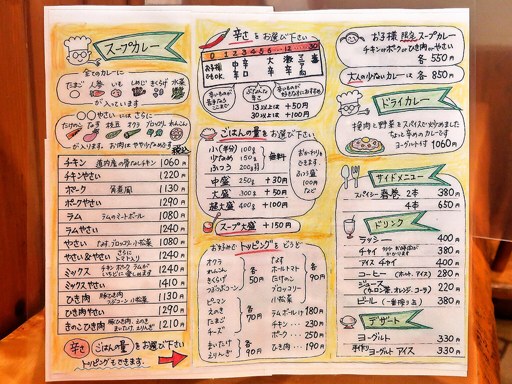 スープカレー
全てのカレーに
たまご 人参 いも しめじ きくらげ 水菜
が入っています
〇〇やさい にはさらに
たけのこ なす 枝豆 オクラ ブロッコリ れんこん
が入ります。お肉はやや少なめです
税込
チキン 1060
チキンやさい 1220
ポーク 角煮風 1130
ポークやさい 1290
ラム ラムのミートボール 1080
ラムやさい 1240
やさい なす、ブロッコリ、小松菜 1080
やさい&やさい さらにトマト入り 1240
ミックス チキン ポーク ラムが 1240
ミックスやさい 1410
ひき肉 1130
ひき肉やさい 1290
きのこひき肉 1210
辛さ ごはんの量 をお選び下さい
トッピングもできます。
辛さ をお選び下さい
0 1 2 3 4 5 6 … 12 … 30
お子様でもOK. 甘口 中辛 辛口 大辛 激辛
13以上は +50円
30以上は +100円
ごはんの量 をお選び下さい
小(半分) 100g
少なめ 150g
ふつう 200g
無料
中盛 250g +30円
大盛 300g +50円
超大盛 400g +100円
おかわりもできます。ふつう盛 100円など
スープ大盛 +150円
お好みでトッピングをどうぞ
オクラ
れんこん
きくらげ
つぶつぶコーン
各50円
ピーマン
えのき
たまご
チーズ
各70円
まいたけ
えりんぎ
各90円
なす
ホールトマト
たけのこ
ブロッコリー
小松菜
各90円
ラムボール1ヶ 180円
チキン … 230円
ポーク … 250円
ひき肉 … 190円
お子様 限定 スープカレー
チキンorポークorひき肉orやさい
各 550円
大人の少ないカレー は 各 850円
ドライカレー
挽肉と野菜をスパイスで炒めました
なっと辛めのカレーです
ヨーグルト付 1060円
サイドメニュー
スパイシー 春巻 2本 380円
4本 650円
ドリンク
ラッシー 400円
チャイ 380円
アイス チャイ 400円
コーヒー (ホット、アイス) 280円
ジュース (ウーロン茶、オレンジ、コーラ) 220円
ビール (一番搾り) 380円
デザート
ヨーグルト 330円
手作りヨーグルトアイス 330円